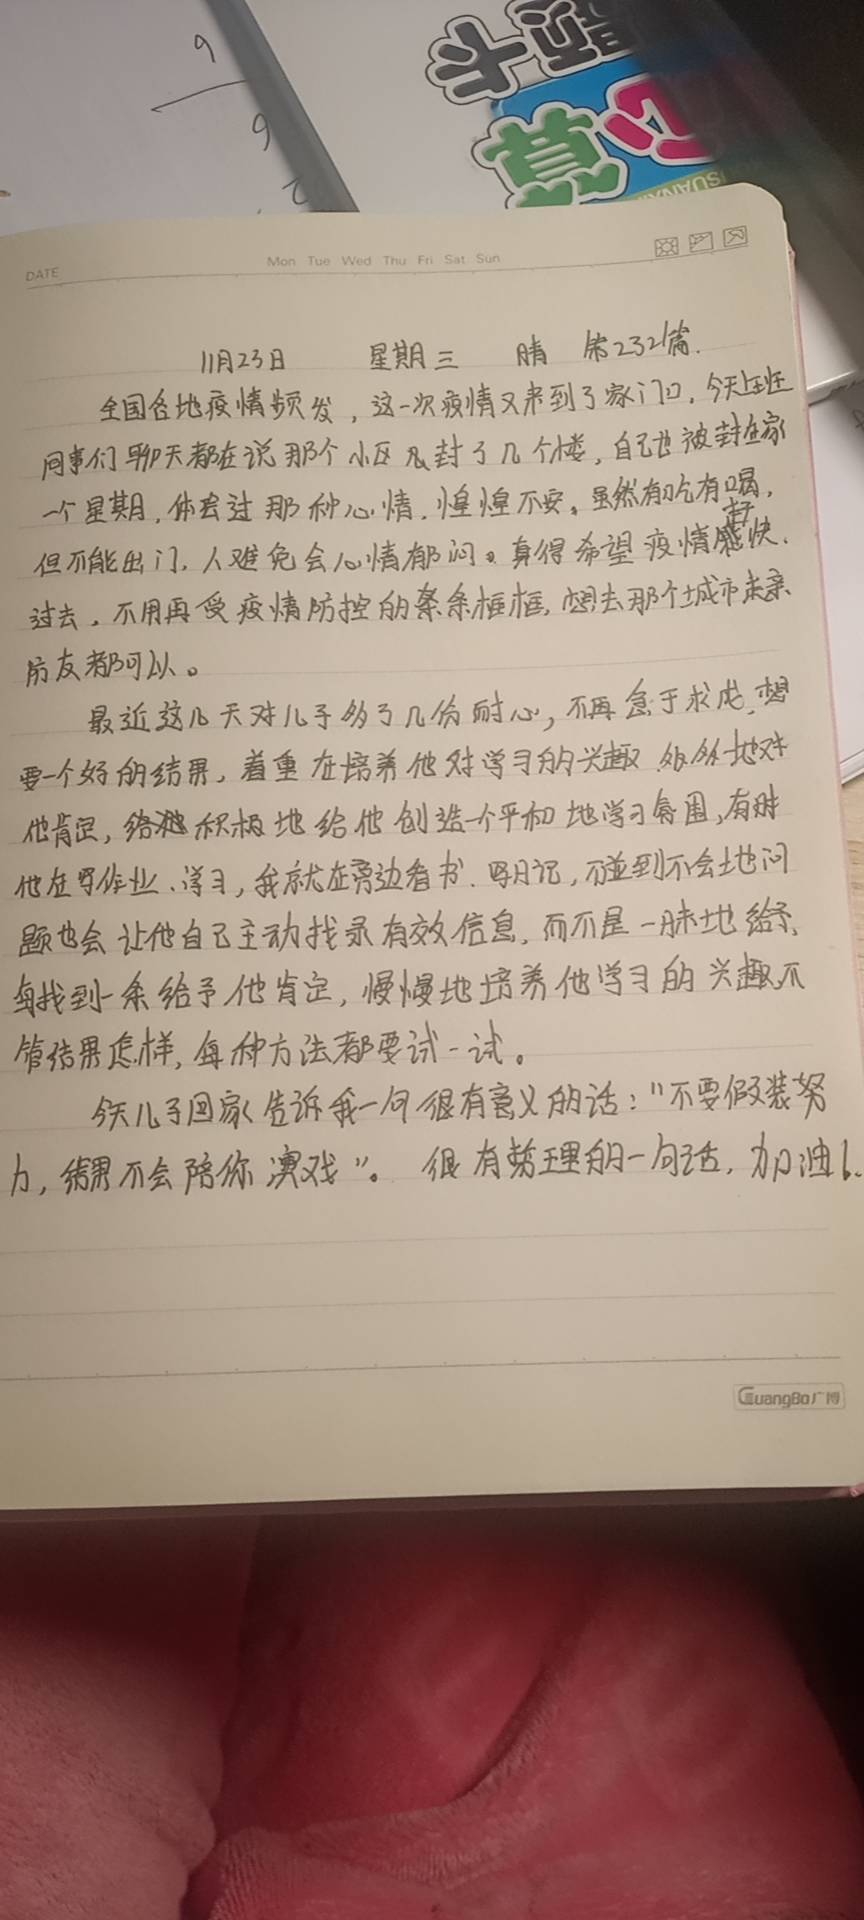 6
6
卡
题
算
心
SUANX
DATE
Mon Tue Wed Thu Fri Sat Sun
11月23日 星期三 晴 第232篇.
全国各地疫情频发，这一次疫情又来到了家门口，今天上班
同事们聊天都在说那个小区又封了几个楼，自己也被封在家
一个星期，体会过那种心情，惶惶不安。虽然有吃有喝，
但不能出门，人难免会心情郁闷。真得希望疫情赶快
过去，不用再受疫情防控的条条框框，想去那个城市走亲
访友都可以。
最近这几天对儿子多了几份耐心，不再急于求成，想
要一个好的结果，着重在培养他对学习的兴趣 多多地对
他肯定，积极地给他创造一个平和地学习氛围，有时
他在写作业、学习，我就在旁边看书、写日记，碰到不会地问
题也会让他自己主动找寻有效信息，而不是一味地给予，
每找到一条给予他肯定，慢慢地培养他学习的兴趣不
管结果怎样，每种方法都要试一试。
今天儿子回家告诉我一句很有意义的话："不要假装努
力，结果不会陪你演戏"。 很有哲理的一句话，加油！
GuangBo广博